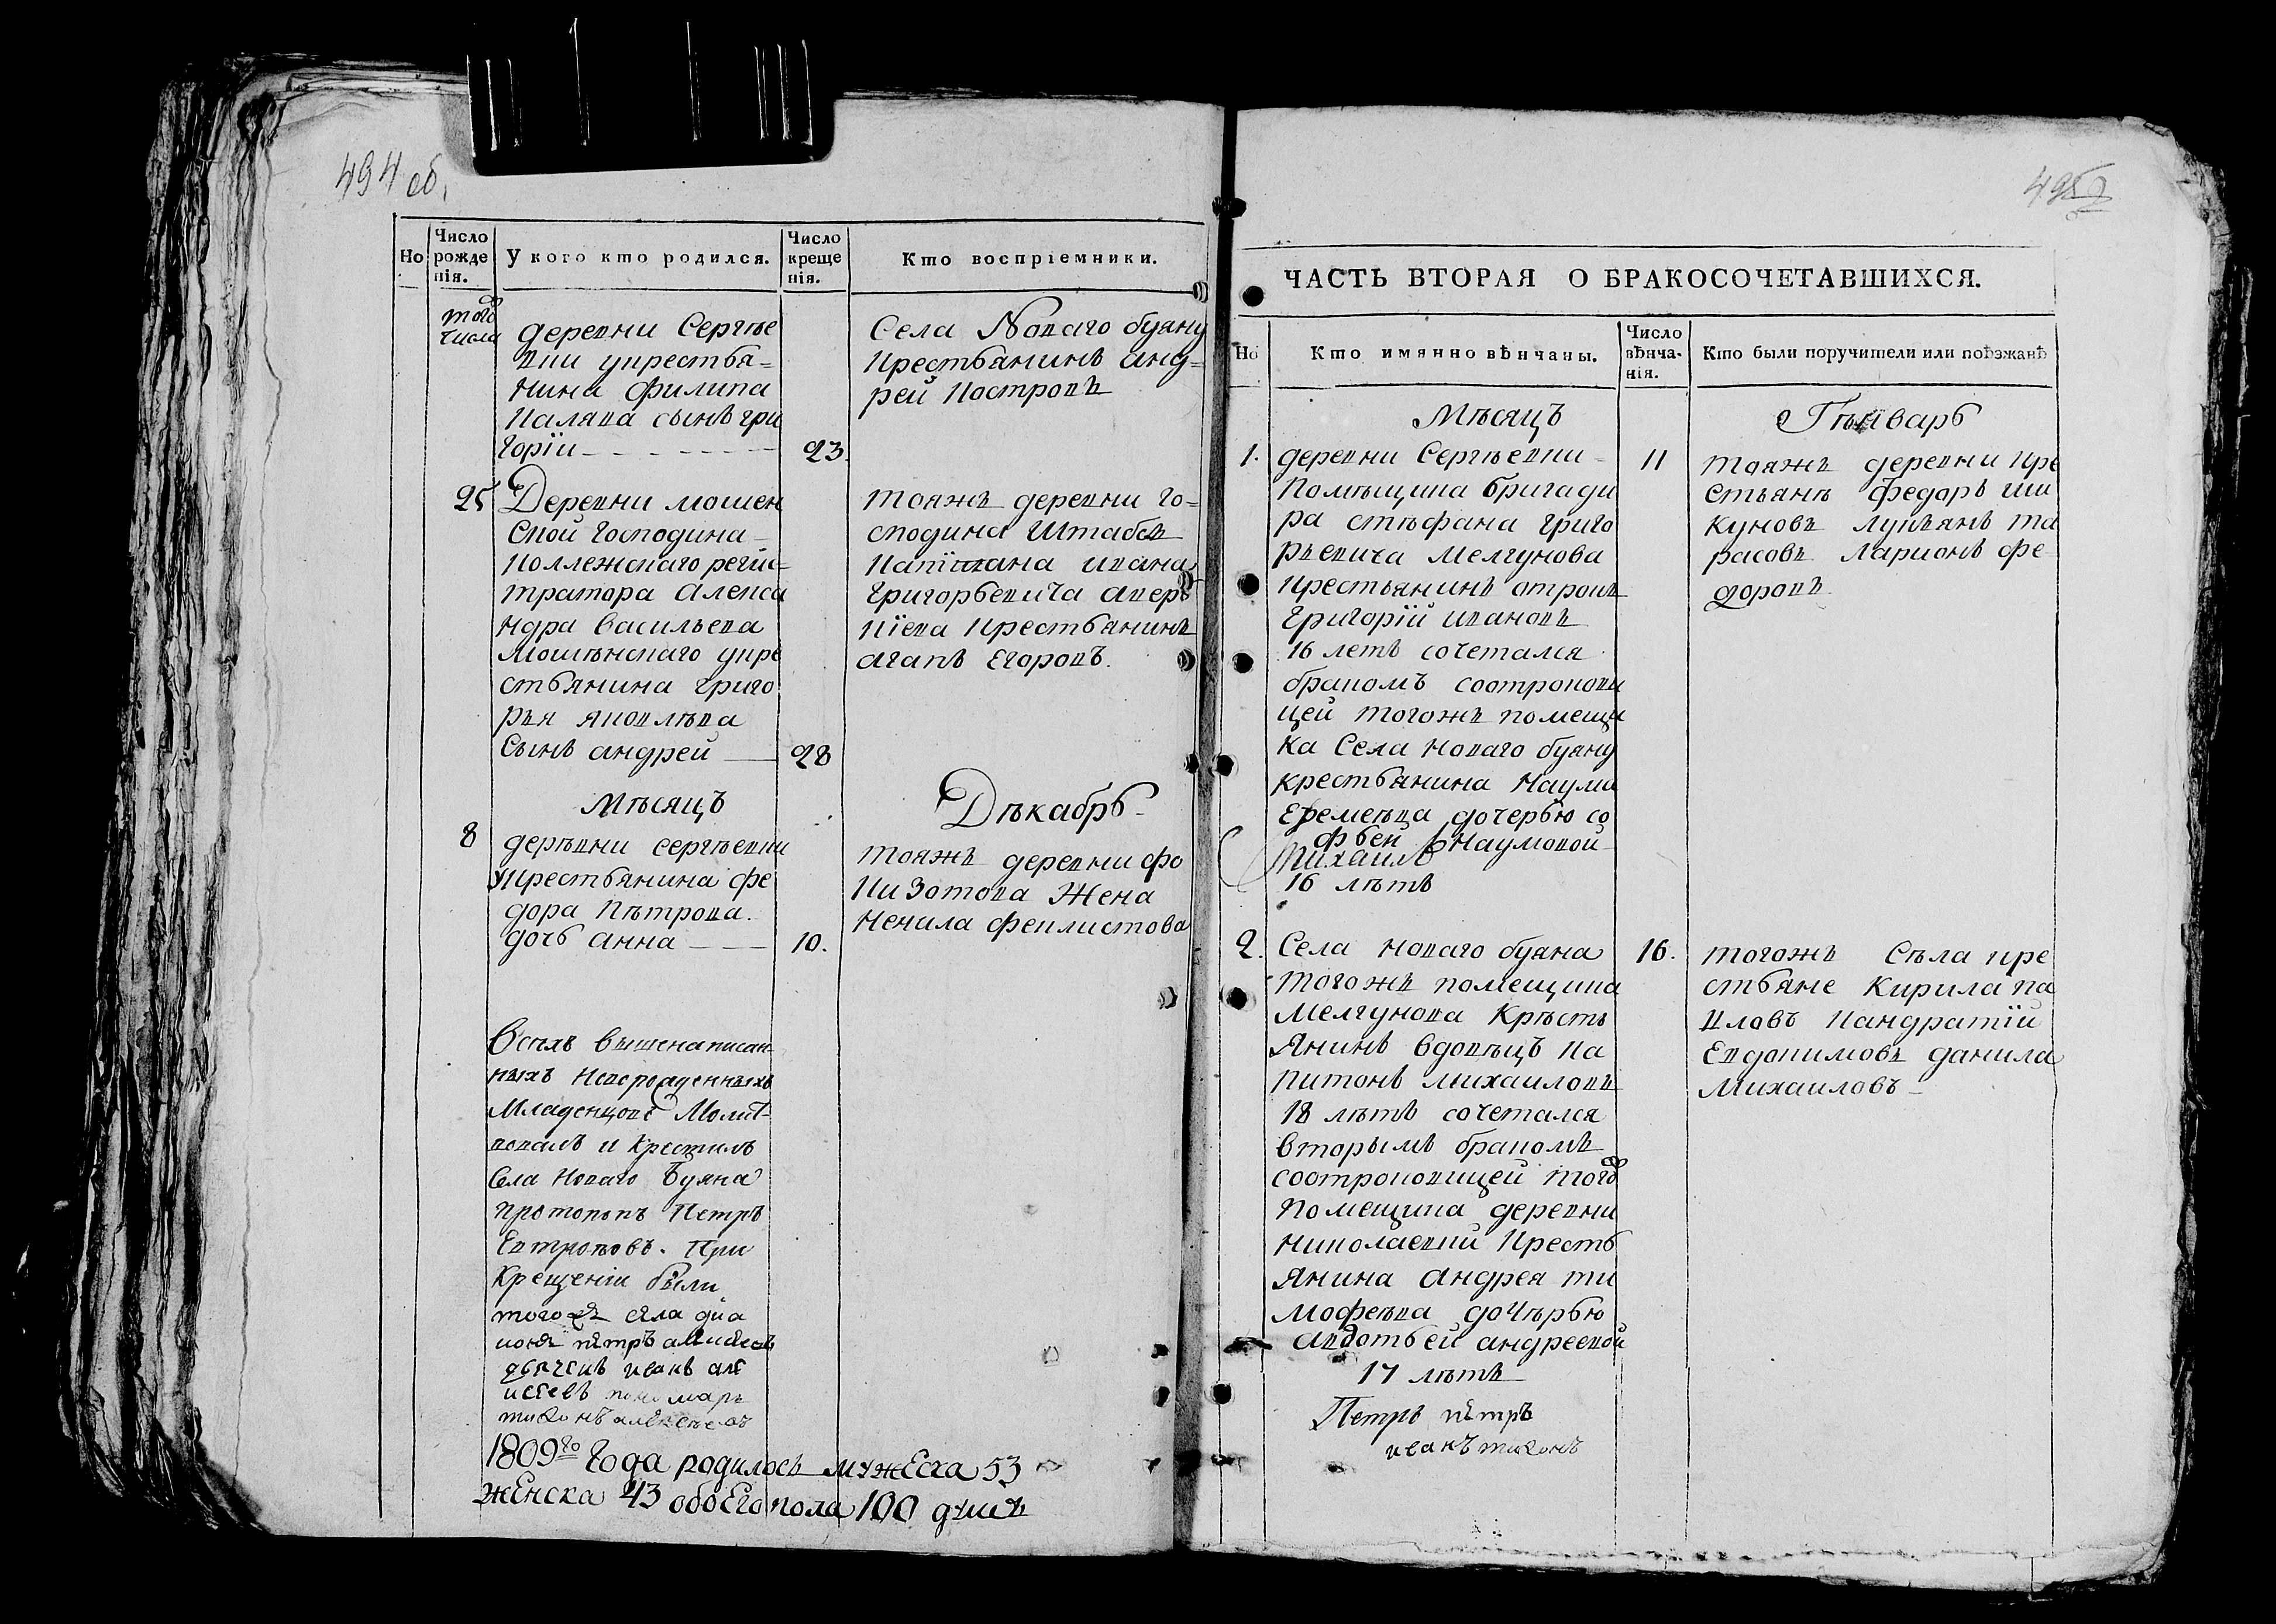 494 об.
Но
Число рожде нія.
У кого кто родился.
Число креще нія.
Кто воспріемники.
того числа
деревни Сергѣе
вки укрестья=
нина филипа
Калява сынъ гри
горіи
23.
Села Новаго буяну
Крестьянинъ анд=
рей Костровъ
25
Деревни мошен
ской господина
Коллежскаго реги=
тратора Алекса
ндра васильева
Мошѣнскаго укре
стьянина григо
рья яковлѣва
Сынъ андрей
28
тояжъ деревни го=
сподина Штабсъ
Капїтана ивана
Григорьевича аверь
кїева Крестьянинъ
агапъ Егоровъ.
Мѣсяцъ
Дѣкабрь
8
дерѣвни сергѣевки
укрестьянина фе
дора Пѣтрова.
дочь анна
10.
тояжъ деревни фо
ки Зотова Жена
Ненила феклистова
Всѣхъ вышенаписан
ныхъ Новорожденныхъ
Младенцовъ Молит
вовалъ и Крестилъ
Села Новаго Буяна
протопопъ Петръ
Евтроповъ. При
Крещеніи были
тогожъ села діа
конъ пѣтръ алексѣевъ
дьячекъ иванъ але
ксѣевъ пономарь
тихонъ алексѣевъ
1809го Года родилось мужеска 53
женска 43 обоего пола 100 душъ
495
ЧАСТЬ ВТОРАЯ О БРАКОСОЧЕТАВШИХСЯ.
Но
Кто имянно вѣнчаны.
Число вѣнча- нія.
Кто были поручители или поѣзжанѣ
Мѣсяцъ
Гѣнварь
1.
деревни Сергѣевки
Помѣщика бригади
ра стѣфана григо
рьевича Мелгунова
Крестьянинъ отрокъ
Григорїй ивановъ
16 летъ сочетался
бракомъ соотрокови
цей тогожъ помещи
ка Села Новаго буяну
крестьянина Наума
Еремѣева дочерью со
фьей Наумовой
Михаилъ
16 лѣтъ
11
тояжъ деревни Кре
стьянѣ федоръ ши
куновъ лукъянъ та
расовъ Ларионъ фе
доровъ.
2.
Села Новаго буяна
тогожъ помещика
Мелгунова Крѣсть
Янинъ вдовѣцъ Ка
питонъ михаиловъ
18 лѣтъ сочетался
вторымъ бракомъ
соотроковицей тогожъ
Помещика деревни
Николаевки Кресть
Янина андрея ти
мофеѣва дочѣрью
авдотьей андреевой
17 лѣтъ
16.
тогожъ Сѣла кре
стьяне Кирила па
вловъ Кандратїй
Евдокимовъ данила
Михаиловъ
Петръ пѣтръ
иванъ тихонъ